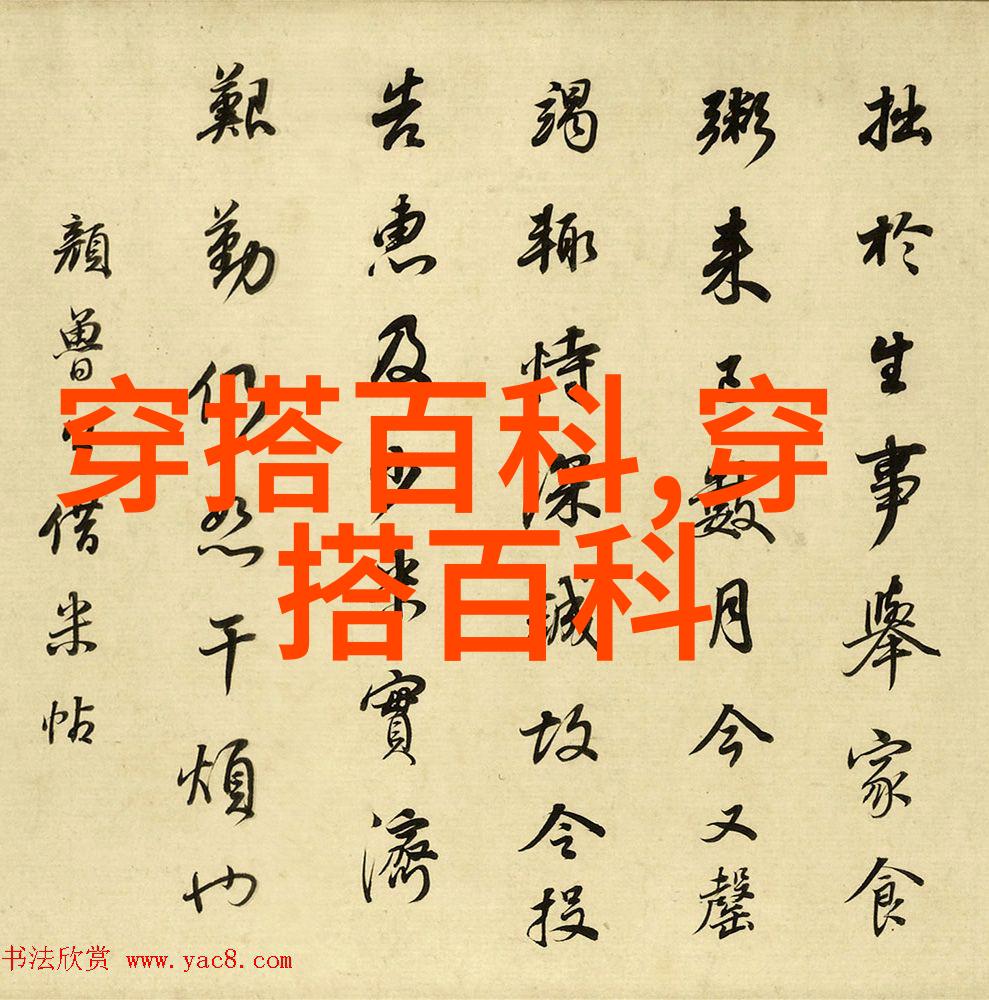 拙於生事舉家食
粥来已數月今又罄
竭輒恃深誠故令投
告惠及少米實濟
艱勤仍恕干煩也
顏魯公借米帖
穿搭百科,穿
搭百科
书法欣赏 www.yac8.com